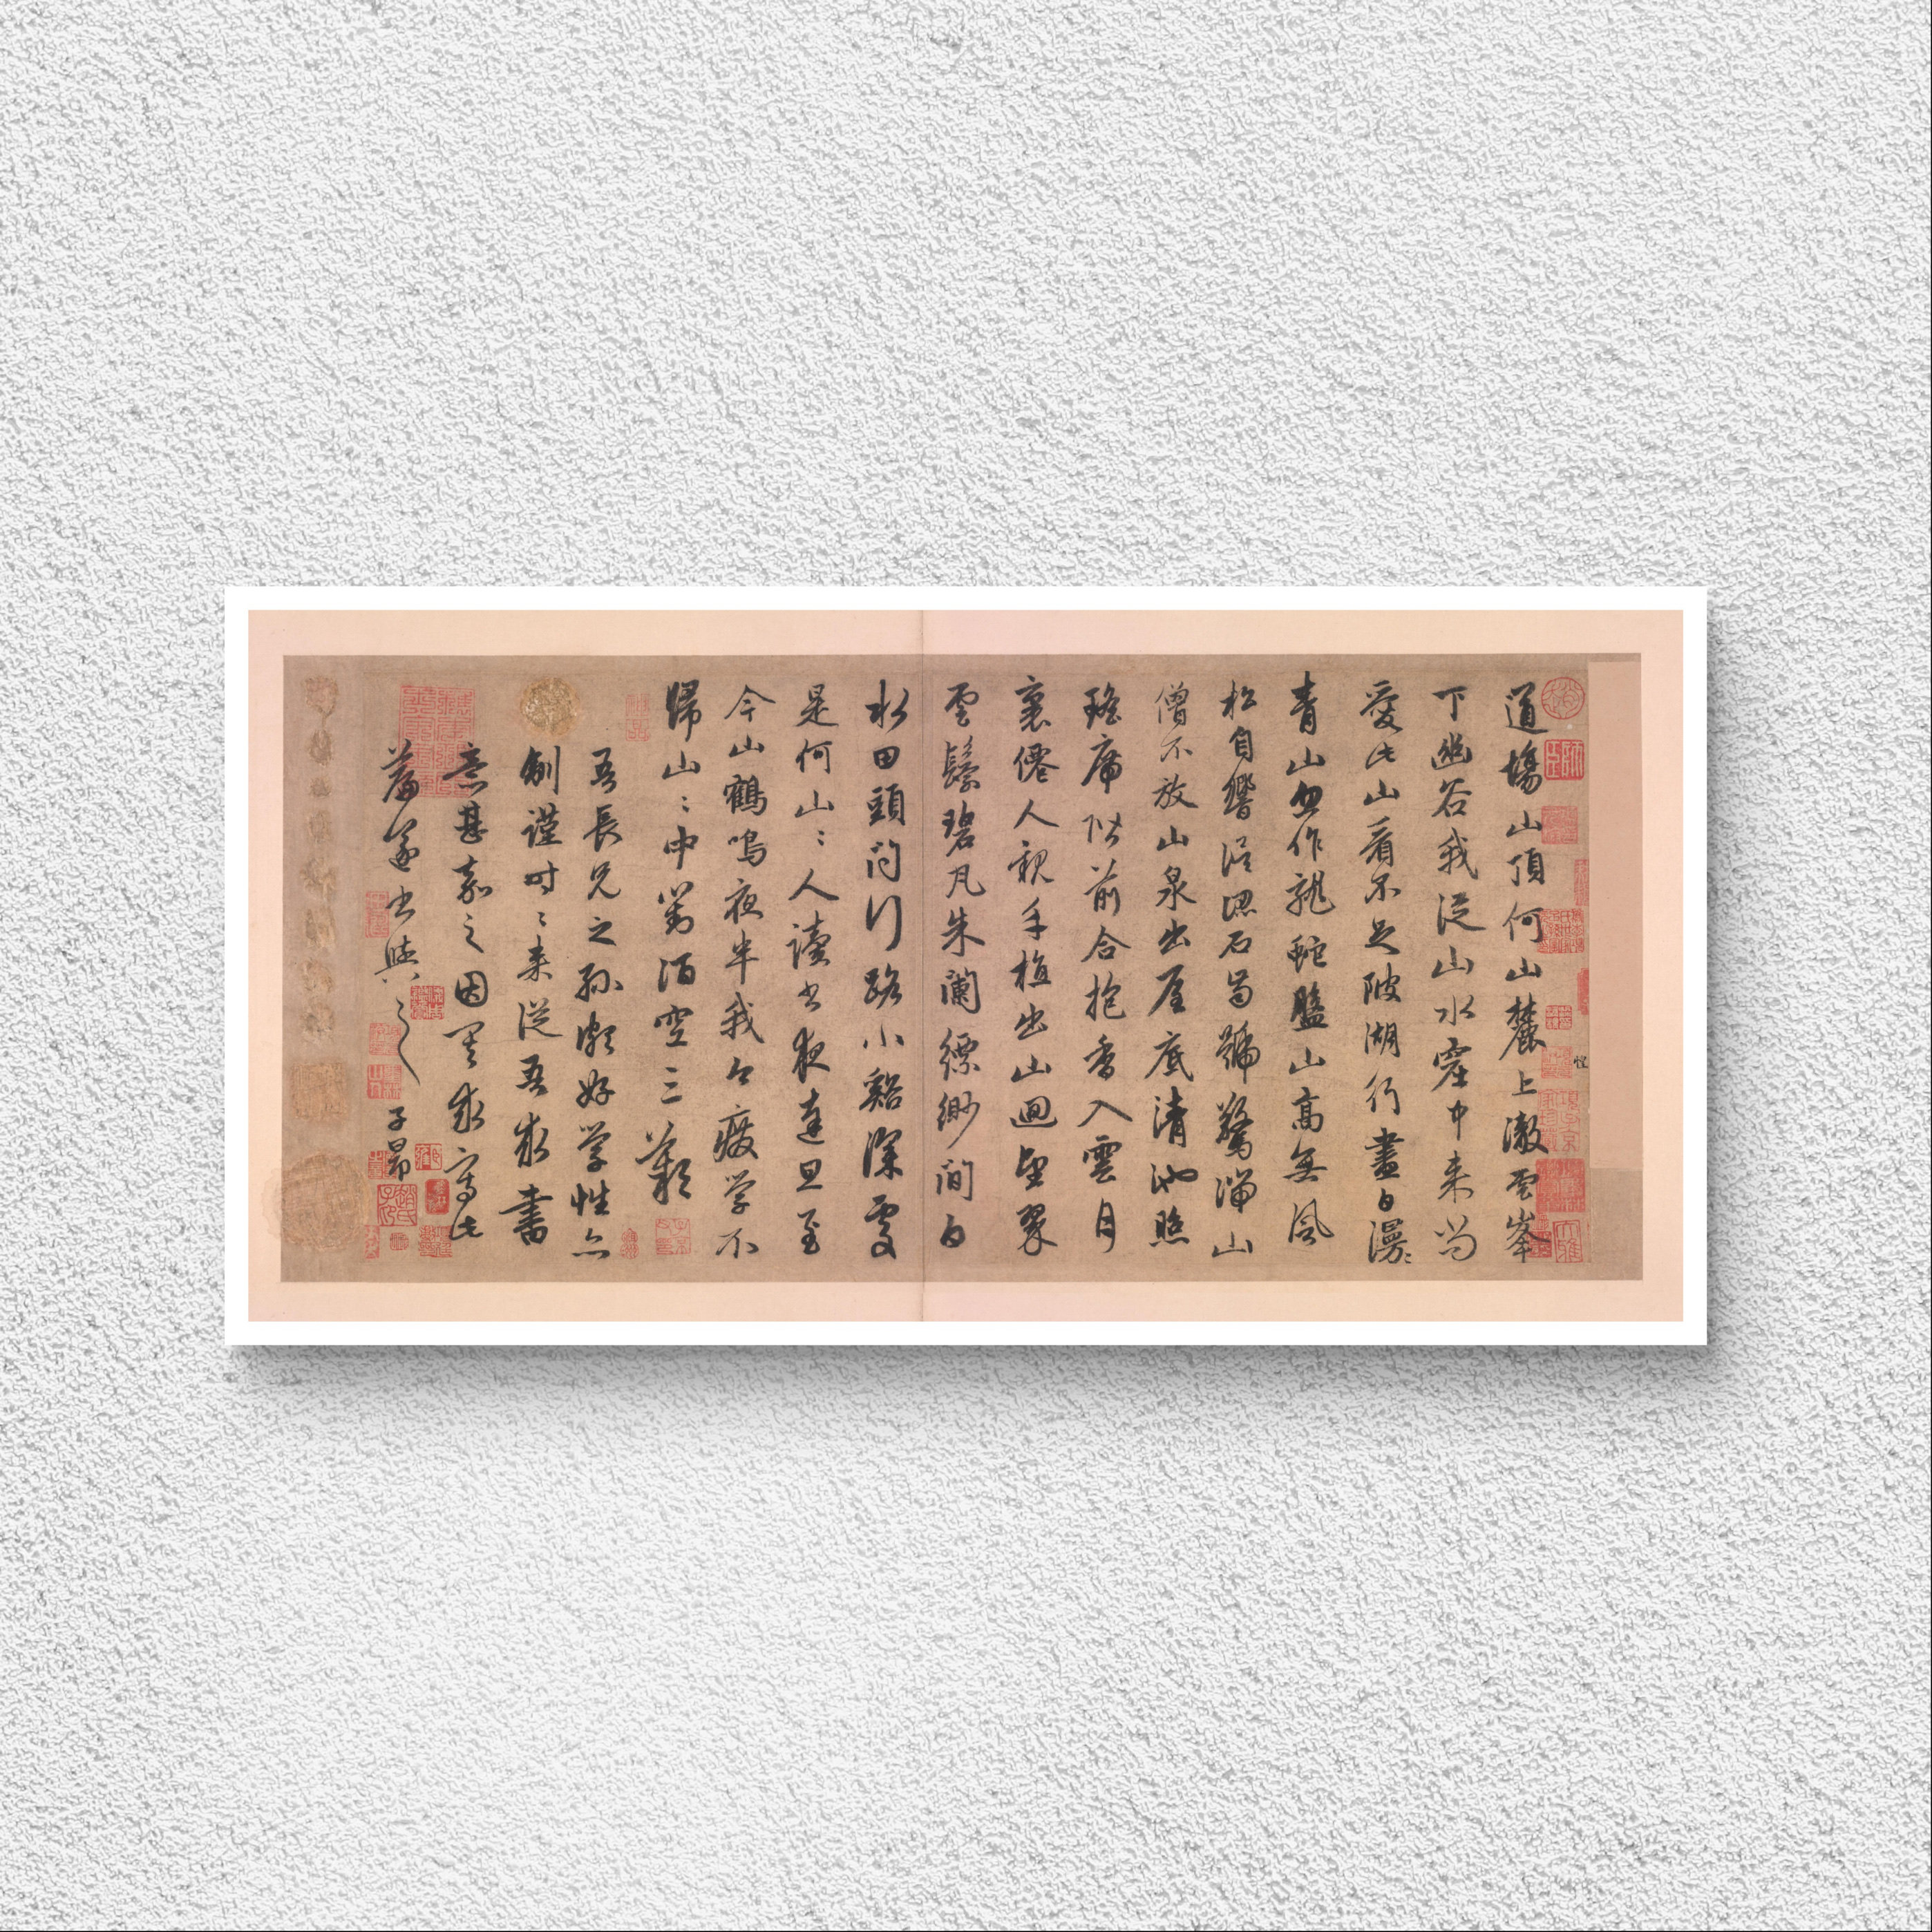 道場山頂何山麓上澈雲峯
下幽谷我從山水窟中來尚
愛此山看不足陂湖行盡白漫〻
青山忽作龍蛇盤山高無風
松自響誤認石齒號驚湍山
僧不放山泉出屋底清池照
瑤席階前合抱香入雲月
裏僊人親手植出山迴望翠
雲鬟碧瓦朱闌縹緲間白
水田頭問行路小谿深處
是何山〻人讀書夜達旦至
今山鶴鳴夜半我今廢學不
歸山〻中對酒空三歎
吾長兄之孫頗好學性亦
馴謹時〻來從吾求書
意甚嘉之因其求寫此
篇遂書與之
子昂